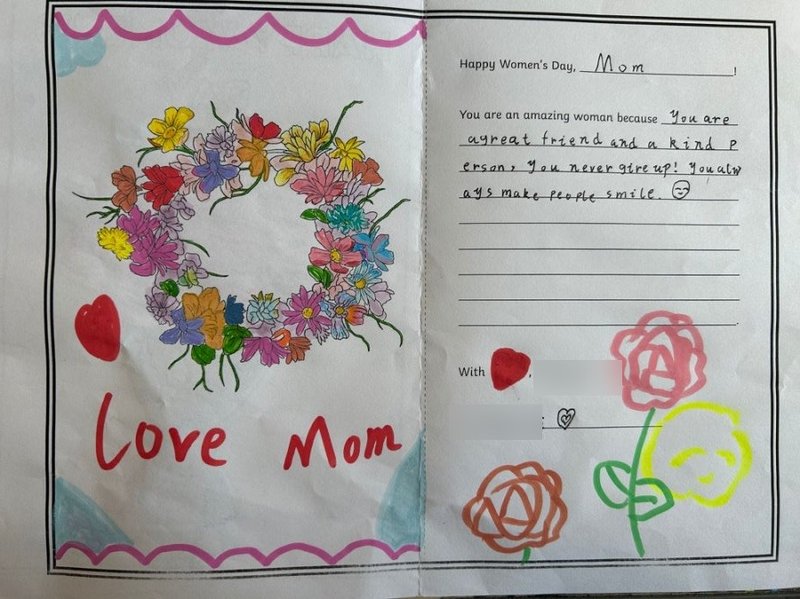 Love Mom
Happy Women's Day, Mom !
You are an amazing woman because You are
agreat friend and a kind p
erson, You never give up! You alw
ays make people smile.
With